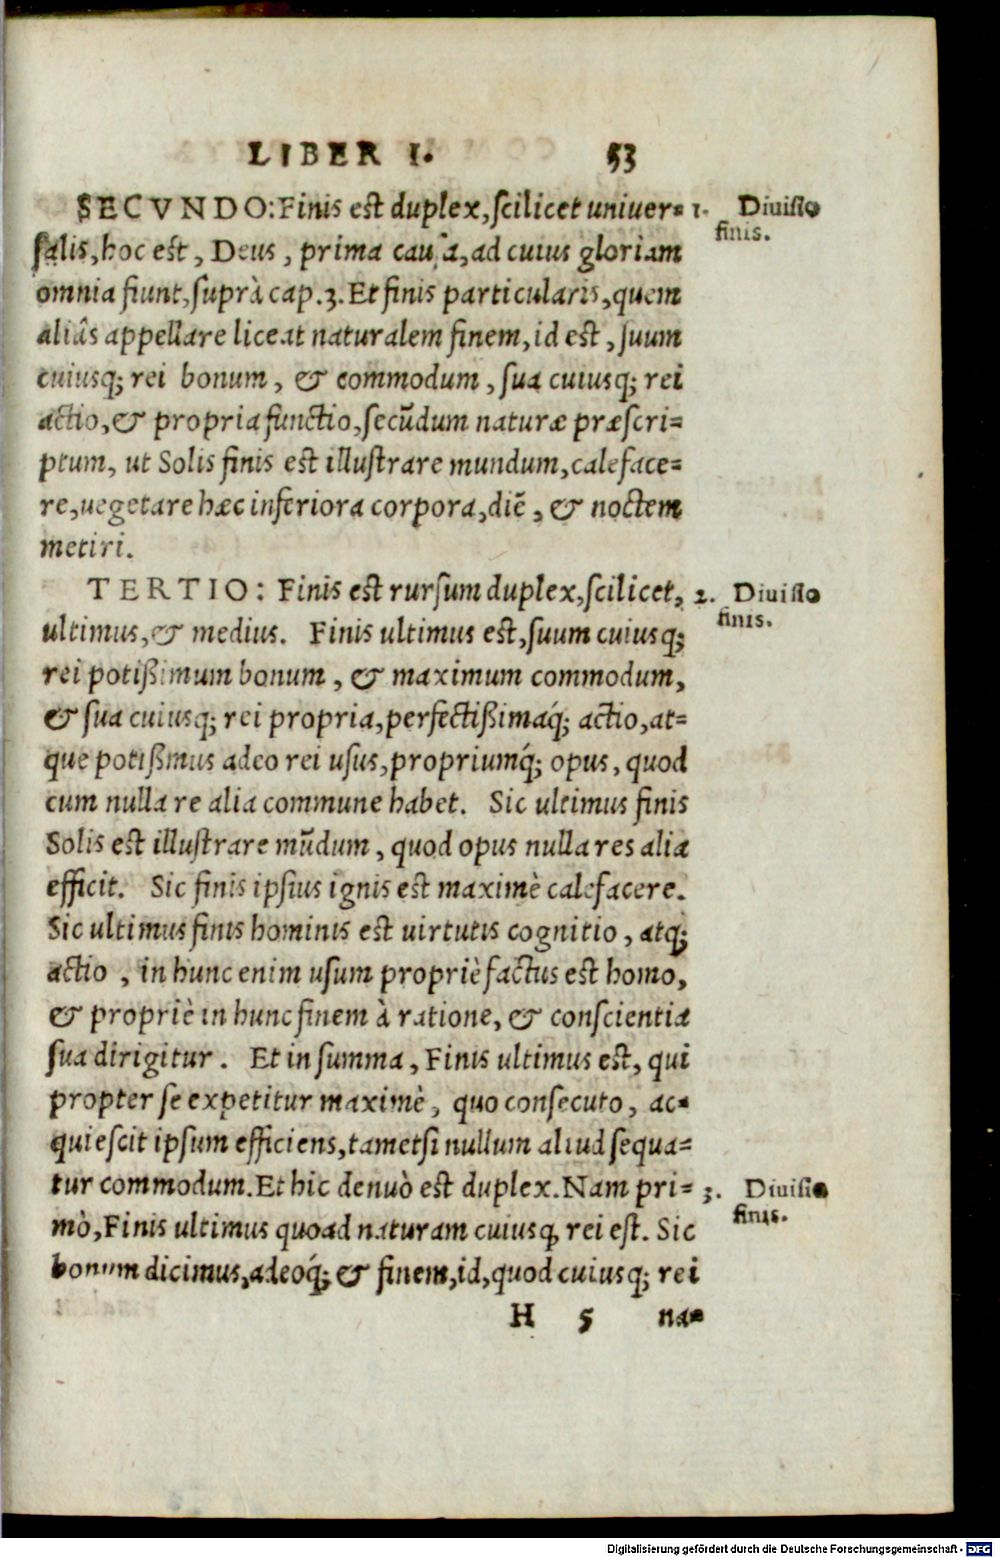 LIBER I. 53
SECVNDO: Finis est duplex, scilicet uniuer= 1. Diuisio
salis, hoc est, Deus, prima causa, ad cuius gloriam finis.
omnia fiunt, suprà cap. 3. Et finis particularis, quem
aliâs appellare liceat naturalem finem, id est, suum
cuiusq; rei bonum, & commodum, sua cuiusq; rei
actio, & propria functio, secũdum naturæ præscri=
ptum, ut Solis finis est illustrare mundum, caleface=
re, uegetare hæc inferiora corpora, diẽ, & noctem
metiri.
TERTIO: Finis est rursum duplex, scilicet, 2. Diuisio
ultimus, & medius. Finis ultimus est, suum cuiusq; finis.
rei potißimum bonum, & maximum commodum,
& sua cuiusq; rei propria, perfectißimaq́; actio, at=
que potißimus adeo rei usus, propriumq́; opus, quod
cum nulla re alia commune habet. Sic ultimus finis
Solis est illustrare mũdum, quod opus nulla res alia
efficit. Sic finis ipsius ignis est maximè calefacere.
Sic ultimus finis hominis est uirtutis cognitio, atq;
actio, in hunc enim usum propriè factus est homo,
& propriè in hunc finem à ratione, & conscientia
sua dirigitur. Et in summa, Finis ultimus est, qui
propter se expetitur maximè, quo consecuto, ac=
quiescit ipsum efficiens, tametsi nullum aliud sequa=
tur commodum. Et hic denuò est duplex. Nam pri= 3. Diuisio
mò, Finis ultimus quoad naturam cuiusq; rei est. Sic finis.
bonum dicimus, adeoq́; & finem, id, quod cuiusq; rei
H 5 na=
Digitalisierung gefördert durch die Deutsche Forschungsgemeinschaft - DFG